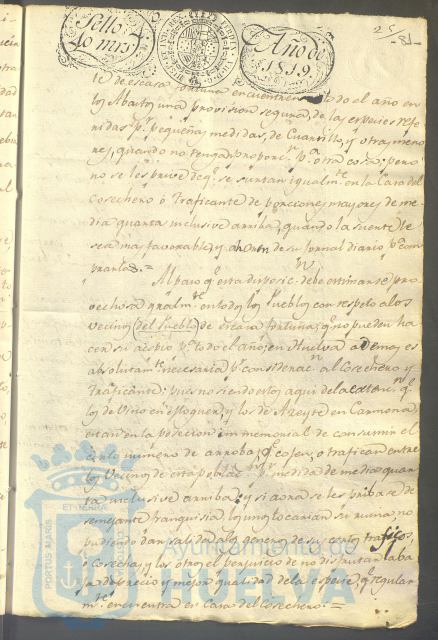 Sello
40 mrs
Año de
1819.
25 / 81
te de escasa fortuna encuentren todo el año en
los Abastos una provision segura, de las especies refe-
ridas pr. pequeñas medidas, de Cuartillo, y otras meno
res, quando no tengan proporn. pa. otra cosa; pero
no se les prive de qe. se surtan igualmte. en la Casa del
Cosechero ó Traficante de porciones mayores de me-
dia quarta inclusive arriba, quando la suerte le
sea mas favorable, y ahorren de su jornal diario pa. com
prarlas. =
Al paso qe. esta disposicn. debe estimarse pro
vechosa gralmte. en todos los Pueblos con respeto a los
vecinos del Pueblo de escasa fortuna, qe. no pueden ha
cer su acopio pa. todo el año; en Huelva ademas es
absolutamte. necesaria pr. consideracn. al Cosechero y
Traficante: pues no siendo estos aqui de la extencn. qe.
los de Vino en Moguer, y los de Azeyte en Carmona
estan en la posecion inmemorial de consumir el
corto numero de arrobas qe. cojen, o trafican entre
los Vecinos de esta poblacn. pr. medida de media quar
ta inclusive arriba; y si aora se les pribase de
semejante franquisia, los unos tocarian su ruina, no
pudiendo dar salida a los generos de su corto trafico,
ó Cosecha, y los otros el perjuicio de no disfrutar la ba
ja del precio y mejor qualidad de la especie, qe. regular
mte. encuentran en Casa del Cosechero. =
PORTUS MARIS
ET TERRAE
Ayuntamiento de
HUELVA